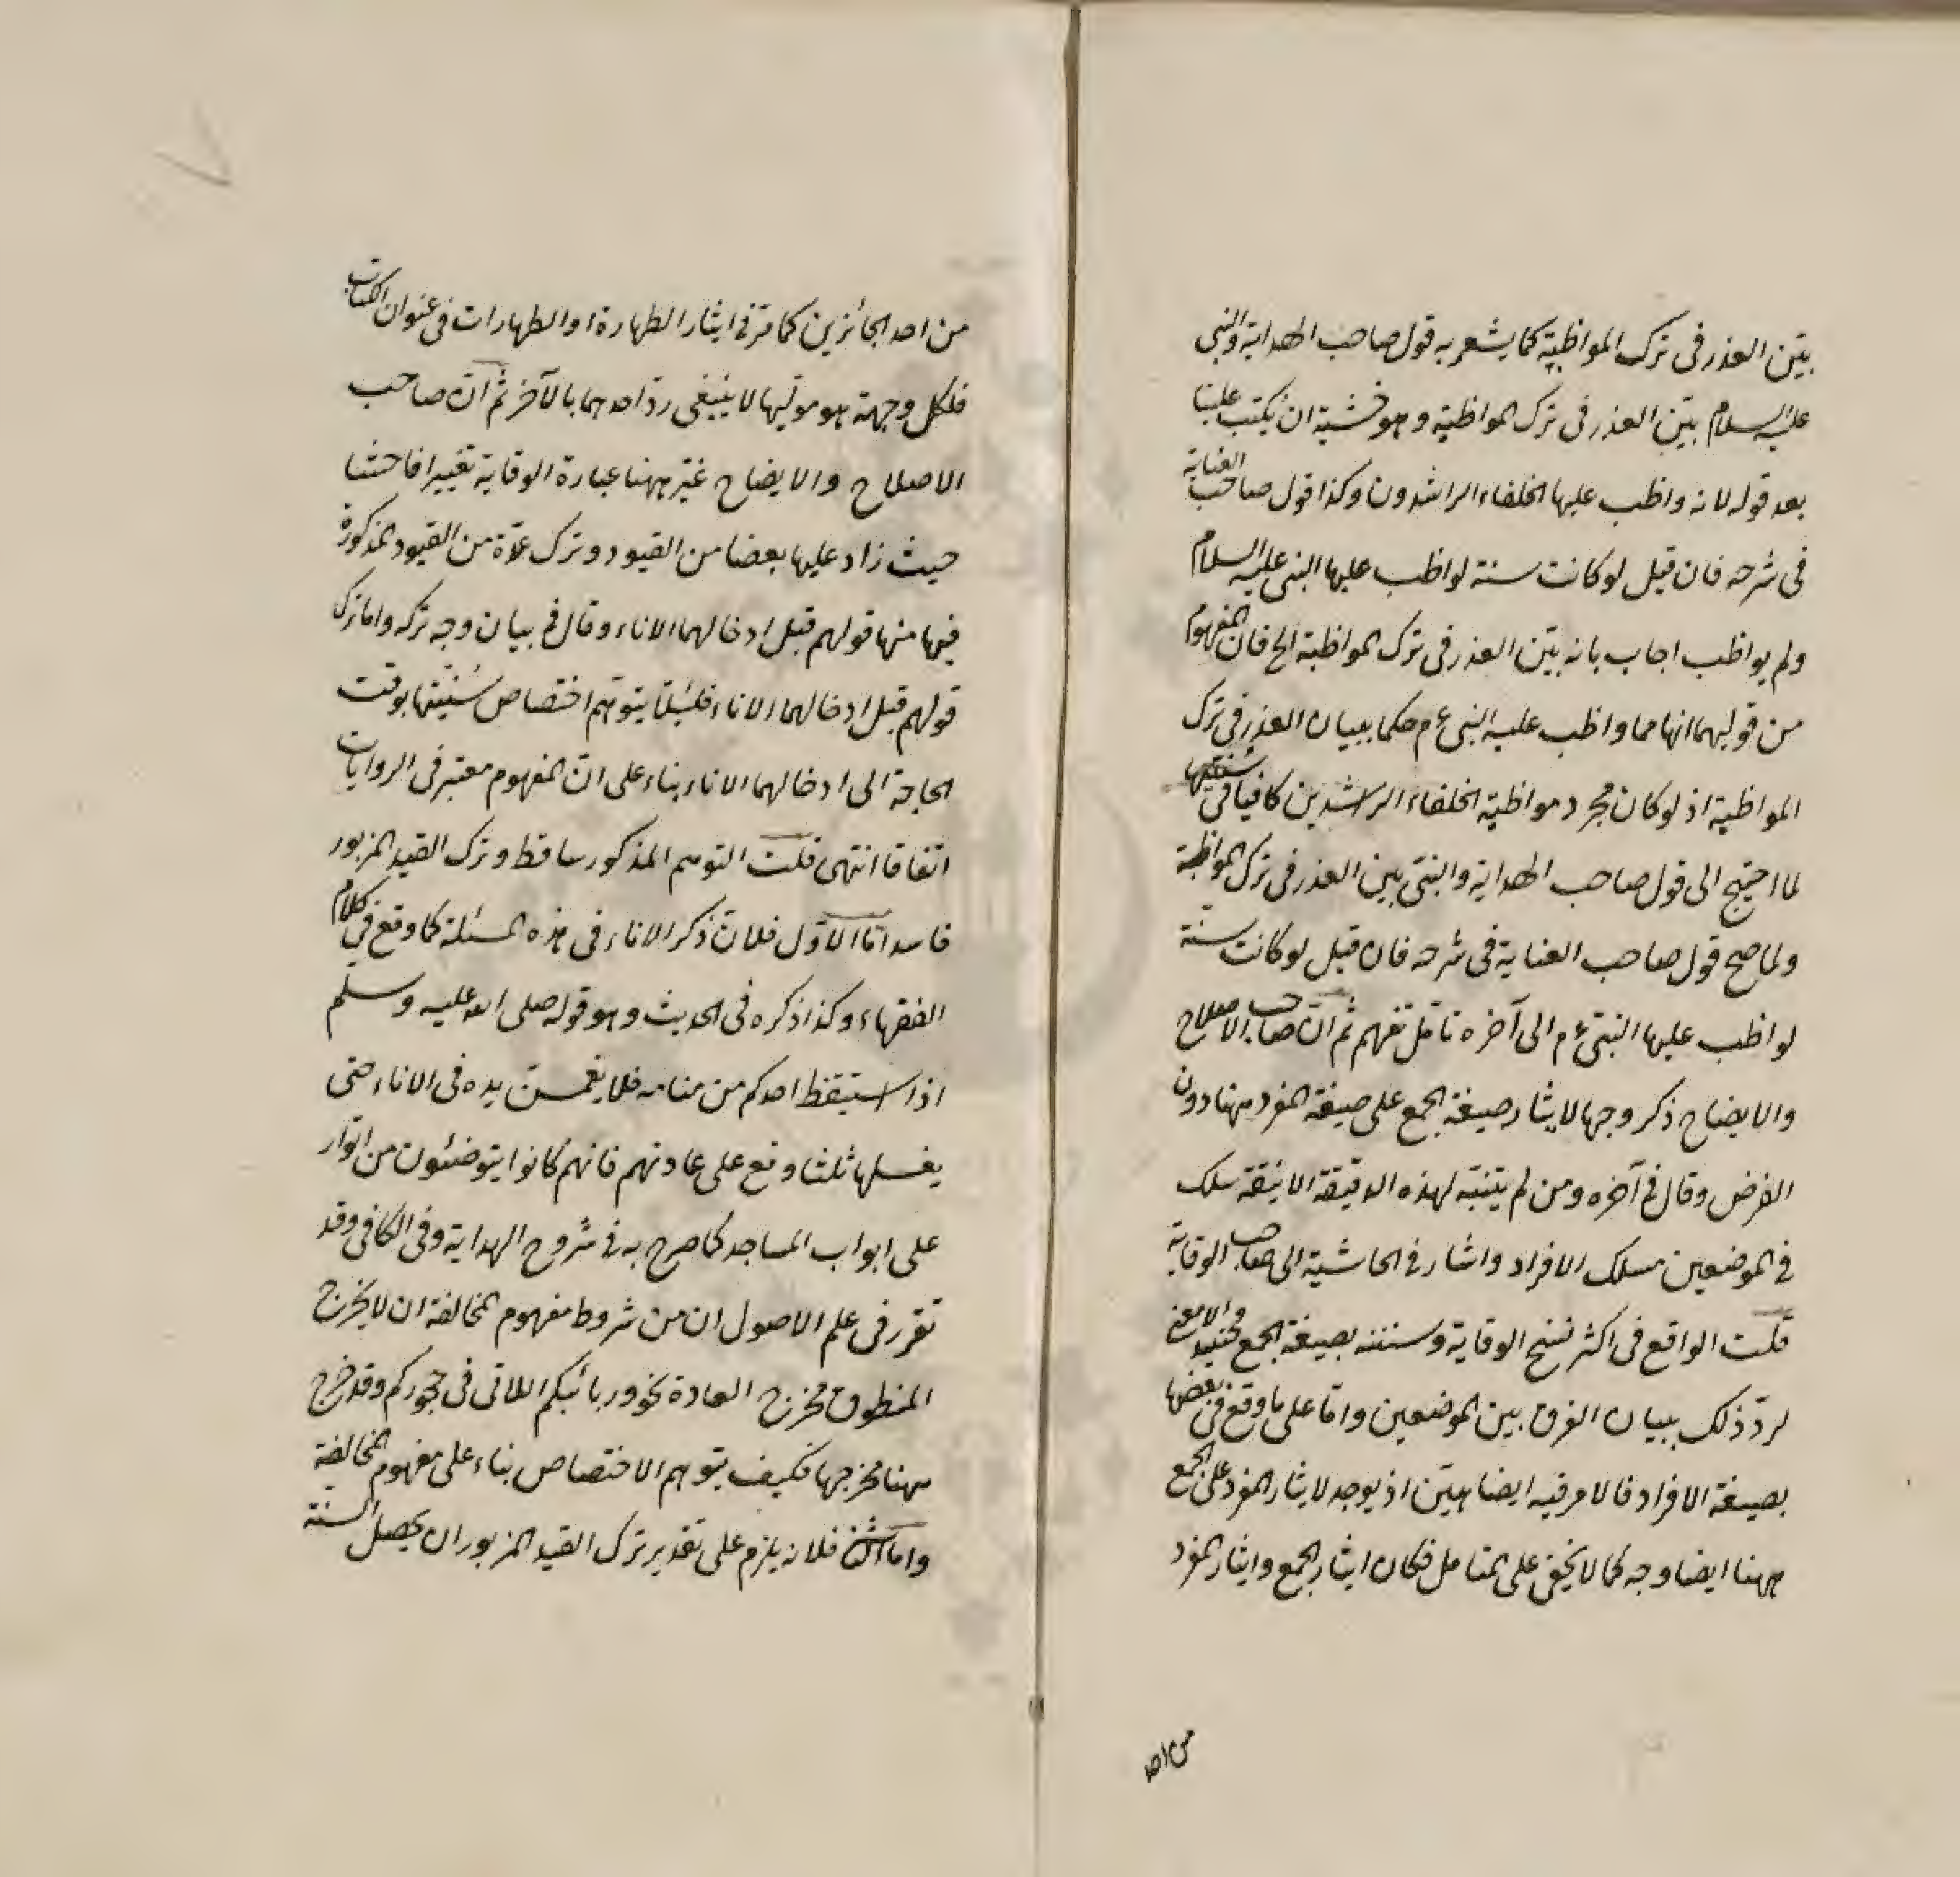 بيّن العذر فى ترك المواظبة كما يشعر به قول صاحب الهداية والنبى
عليه السلام بيّن العذر فى ترك المواظبة وهو خشية ان يكتب علينا
بعد قوله لانه واظب عليها الخلفاء الراشدون وكذا قول صاحب العناية
فى شرحه فان قيل لو كانت سنة لواظب عليها النبى عليه السلام
ولم يواظب اجاب بانه بيّن العذر فى ترك المواظبة الخ فان المفهوم
من قولهما انها مما واظب عليه النبى ءم حكما ببيان العذر فى ترك
المواظبة اذ لو كان مجرد مواظبة الخلفاء الراشدين كافيا فى سنّيتها
لما احتيج الى قول صاحب الهداية والنبى بين العذر فى ترك المواظبة
ولما صح قول صاحب العناية فى شرحه فان قيل لو كانت سنة
لواظب عليها النبىّ ءم الى آخره تأمّل تفهم ثم انّ صاحب الاصلاح
والايضاح ذكر وجها لايثار صيغة الجمع على صيغة المفرد ههنا دون
الفرض وقال فى آخره ومن لم يتنبّه لهذه الدقيقة الانيقة سلك
فى الموضعين مسلك الافراد واشار فى الحاشية الى صاحب الوقاية
قلت الواقع فى اكثر نسخ الوقاية وسننه بصيغة الجمع فحينئذ لا معنى
لردّ ذلك ببيان الفرق بين الموضعين وامّا على ما وقع فى بعضها
بصيغة الافراد فالامر فيه ايضا هيّن اذ يوجد لايثار المفرد على الجمع
ههنا ايضا وجه كما لا يخفى على المتأمل فكان ايثار الجمع وايثار المفرد
من احد
من احد الجائزين كما مرّ فى ايثار الطهارة او الطهارات فى عنوان الكتاب
فلكل وجهة هو موليها لا ينبغى ردّ احدهما بالآخر ثم انّ صاحب
الاصلاح والايضاح غيّر ههنا عبارة الوقاية تغييرا فاحشا
حيث زاد عليها بعضا من القيود وترك عدّة من القيود المذكورة
فيها منها قولهم قبل ادخالهما الاناء وقال فى بيان وجه تركه واما ترك
قولهم قبل ادخالهما الاناء فلئلّا يتوهّم اختصاص سُنيّتها بوقت
الحاجة الى ادخالهما الاناء بناء على انّ المفهوم معتبر فى الروايات
اتفاقا انتهى قلت التوهم المذكور ساقط وترك القيد المزبور
فاسد امّا الاوّل فلانّ ذكر الاناء فى هذه المسئلة كما وقع فى كلام
الفقهاء وكذا ذكره فى الحديث وهو قوله صلى الله عليه وسلم
اذا استيقظ احدكم من منامه فلا يغمسنّ يده فى الاناء حتى
يغسلها ثلثا وقع على عادتهم فانهم كانوا يتوضئون من اتوار
على ابواب المساجد كما صرح به فى شروح الهداية وفى الكافى وقد
تقرر فى علم الاصول ان من شروط مفهوم المخالفة ان لا يخرج
المنطوق مخرج العادة نحو وربائبكم اللاتى فى حجوركم وقد خرج
ههنا مخرجها فكيف يتوهم الاختصاص بناء على مفهوم المخالفة
واما الثانى فلانه يلزم على تقدير ترك القيد المزبور ان يحصل السنة